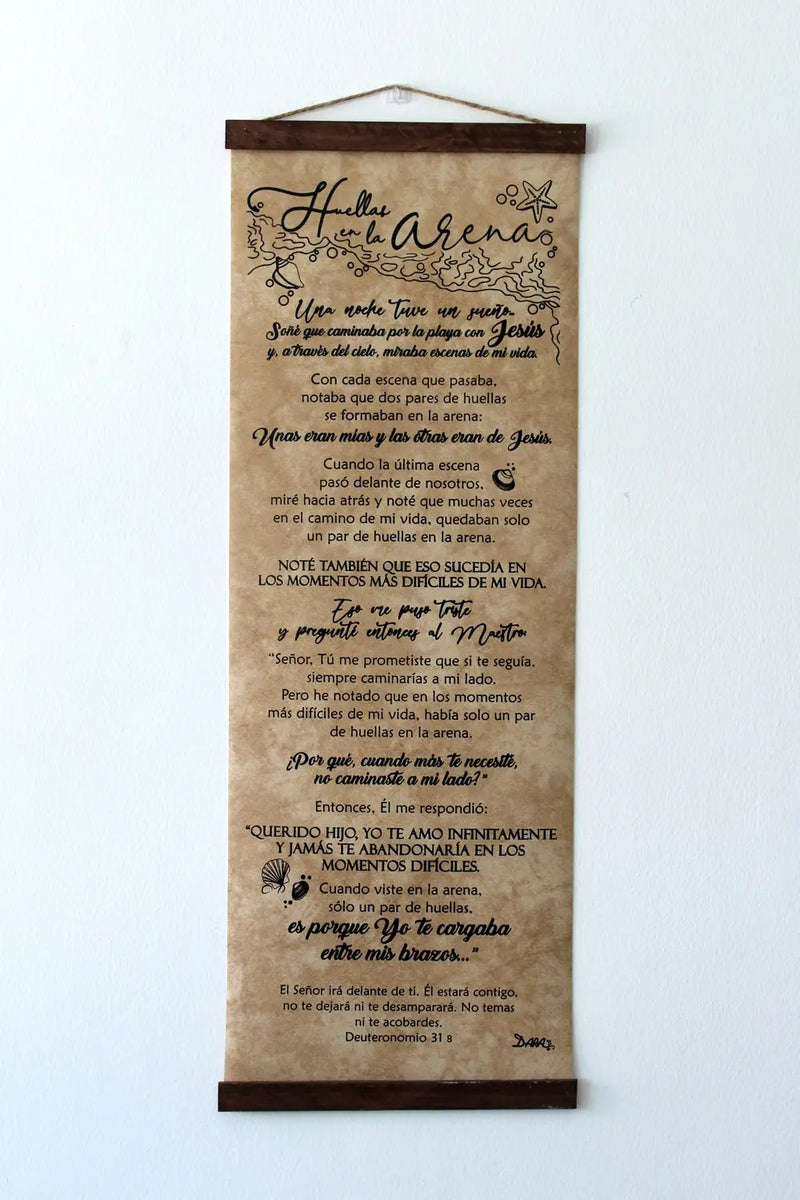 Huellas
en la Arena
Una noche tuve un sueño...
Soñé que caminaba por la playa con Jesús
y, a través del cielo, miraba escenas de mi vida.
Con cada escena que pasaba,
notaba que dos pares de huellas
se formaban en la arena:
Unas eran mías y las otras eran de Jesús.
Cuando la última escena
pasó delante de nosotros,
miré hacia atrás y noté que muchas veces
en el camino de mi vida, quedaban solo
un par de huellas en la arena.
NOTÉ TAMBIÉN QUE ESO SUCEDÍA EN
LOS MOMENTOS MÁS DIFÍCILES DE MI VIDA.
Eso me puso triste
y pregunté entonces al Maestro:
“Señor, Tú me prometiste que si te seguía,
siempre caminarías a mi lado.
Pero he notado que en los momentos
más difíciles de mi vida, había solo un par
de huellas en la arena.
¿Por qué, cuando más te necesité,
no caminaste a mi lado?”
Entonces, Él me respondió:
“QUERIDO HIJO, YO TE AMO INFINITAMENTE
Y JAMÁS TE ABANDONARÍA EN LOS
MOMENTOS DIFÍCILES.
Cuando viste en la arena,
sólo un par de huellas,
es porque Yo te cargaba
entre mis brazos...”
El Señor irá delante de ti. Él estará contigo,
no te dejará ni te desamparará. No temas
ni te acobardes.
Deuteronomio 31 8